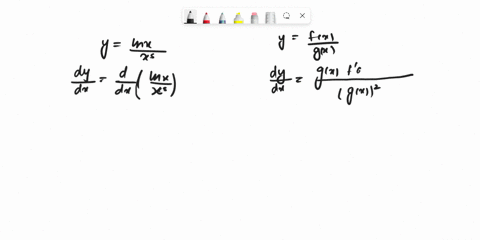 y = lnx / x⁵
dy/dx = d/dx ( lnx / x⁵ )
y = f(x) / g(x)
dy/dx = g(x) f'( / (g(x))²